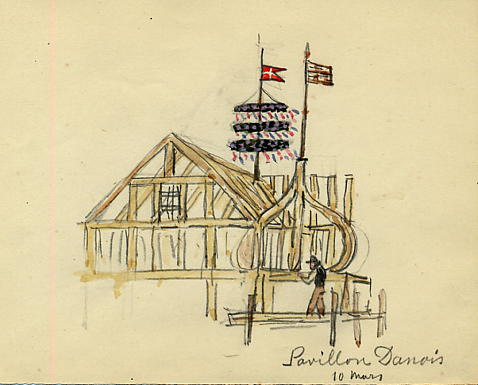 Pavillon Danois
10 Mars